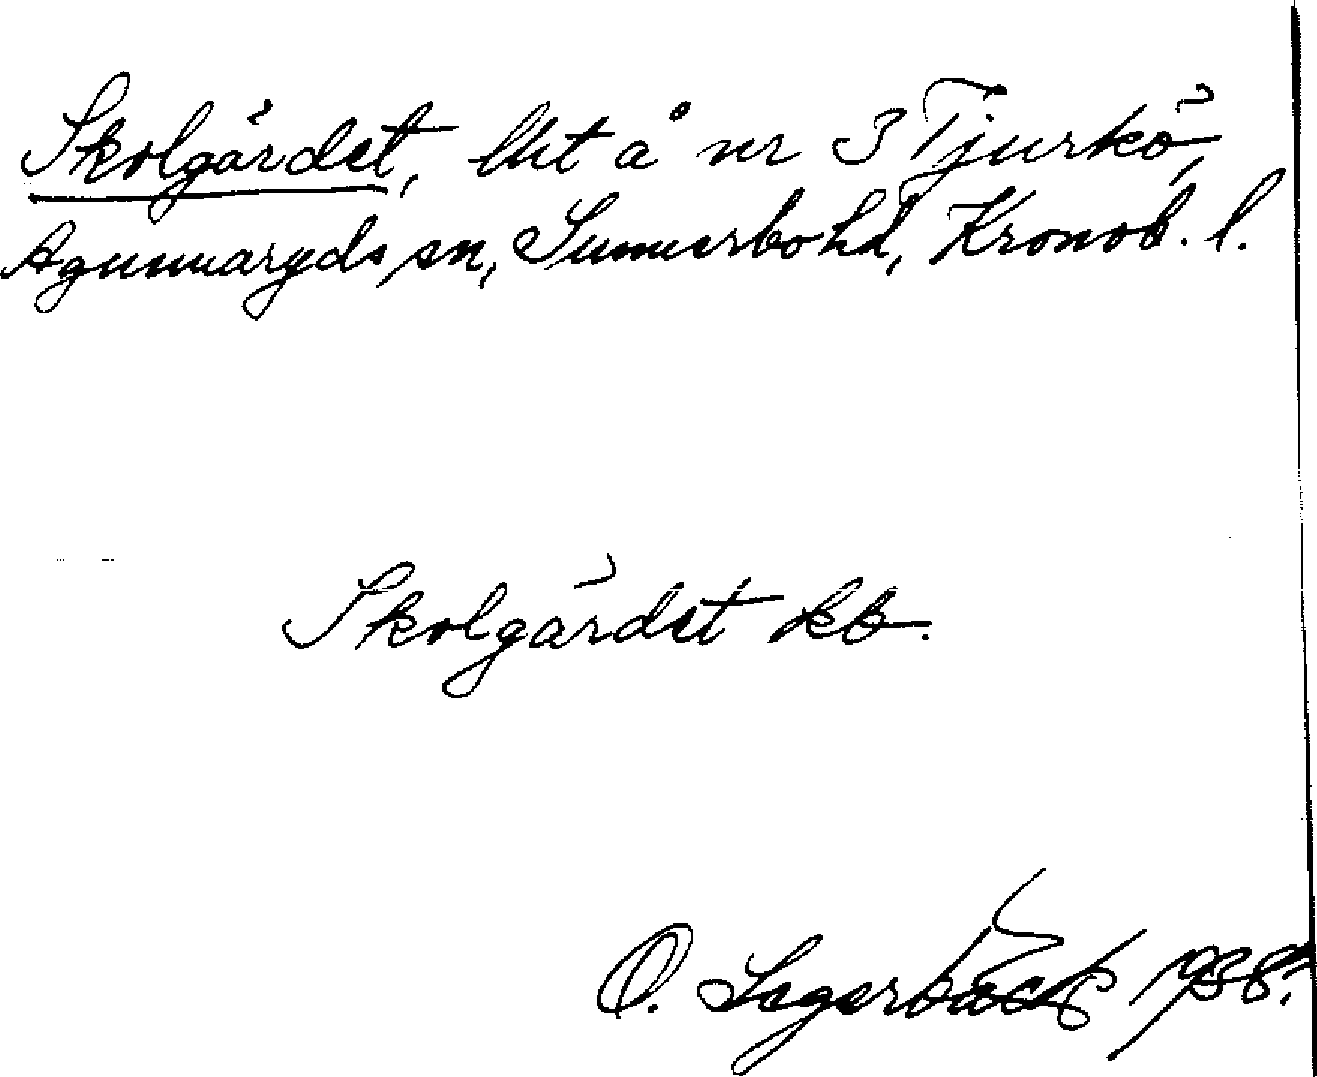 Skolgärdet, lht å nr 3 Tjurkö,
Agunnaryds sn, Sunnerbo hd, Kronob. l.
Skolgärdet kb.
O. Lagerbäck 1938.